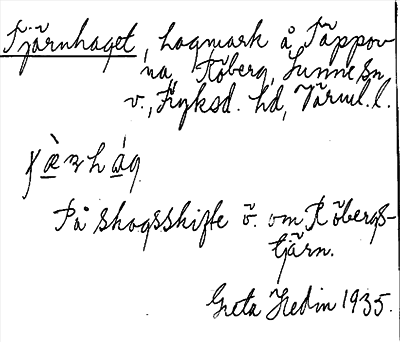 Tjärnhaget, hagmark å Täppor-
na, Röberg, Sunne sn,
v., Fryksd. hd, Värml. l.
På skogsskifte ö. om Röbergs-
tjärn.
Greta Hedin 1935.